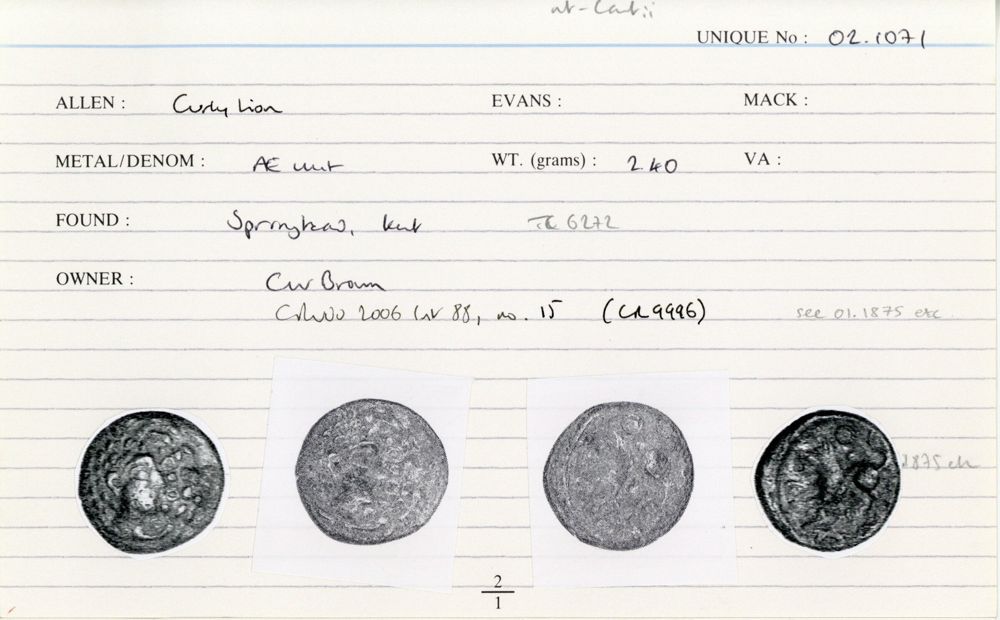 UNIQUE No : 02.1071
ALLEN : Curly Lion EVANS : MACK :
METAL/DENOM : AE unit WT. (grams) : 2.40 VA :
FOUND : Springhead, Kent 6272
OWNER : CW Brown
2006 88, no. 15 (CR9996) see 01.1875 etc
1875
2
1